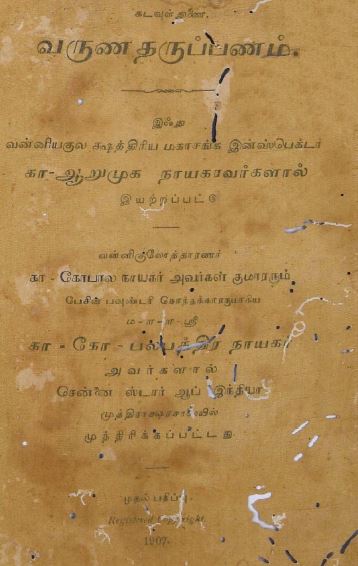 கடவுள் துணை.
வருண தருப்பணம்.
இஃது
வன்னியகுல க்ஷத்திரிய மகாசங்க இன்ஸ்பெக்டர்
கா-ஆறுமுக நாயகரவர்களால்
இயற்றப்பட்டு
வன்னிகுலோத்தாரணர்
கா - கோபால நாயகர் அவர்கள் குமாரரும்
பேசின் பவுண்டரி
ம-ா-ா-ஸ்ரீ
கா - கோ - பலபத்திர நாயகர்
அவர்களால்
சென்னை ஸ்டார் ஆப் இந்தியா
முத்திராக்ஷரசாலையில்
முத்திரிக்கப்பட்டது.
முதல் பதிப்பு.
Registered Copyright
1907.